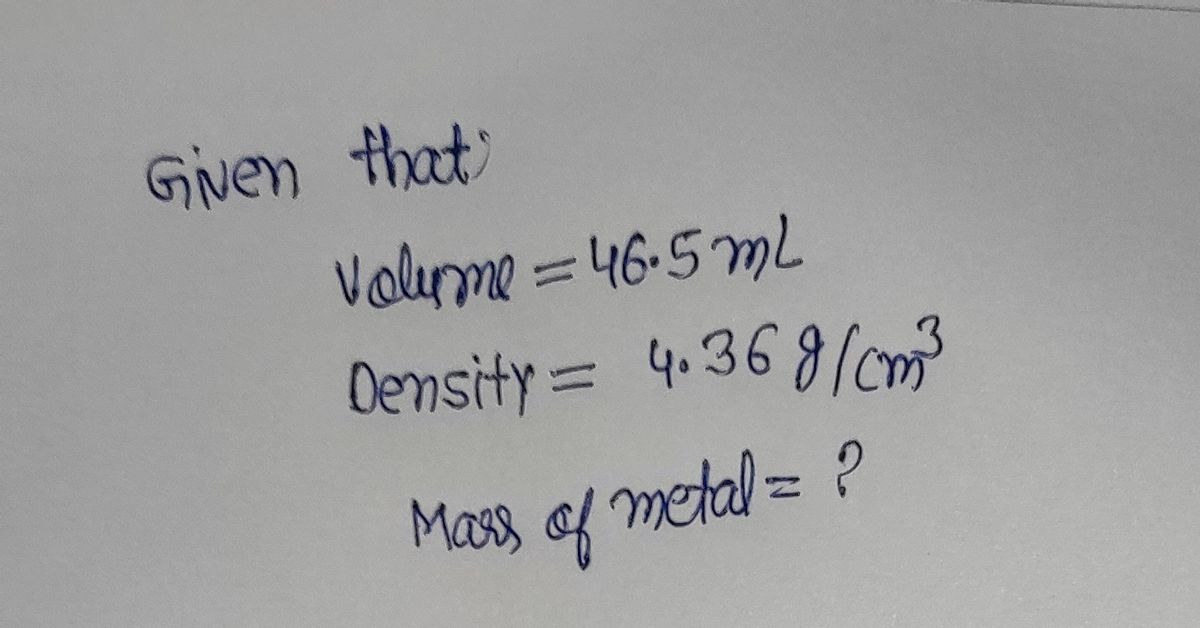 Given that;
Volume = 46.5 mL
Density = 4.36 g/cm³
Mass of metal = ?